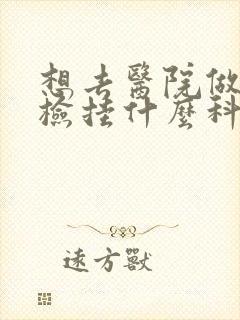 想去醫院做
檢挂什麼科
遠方獸